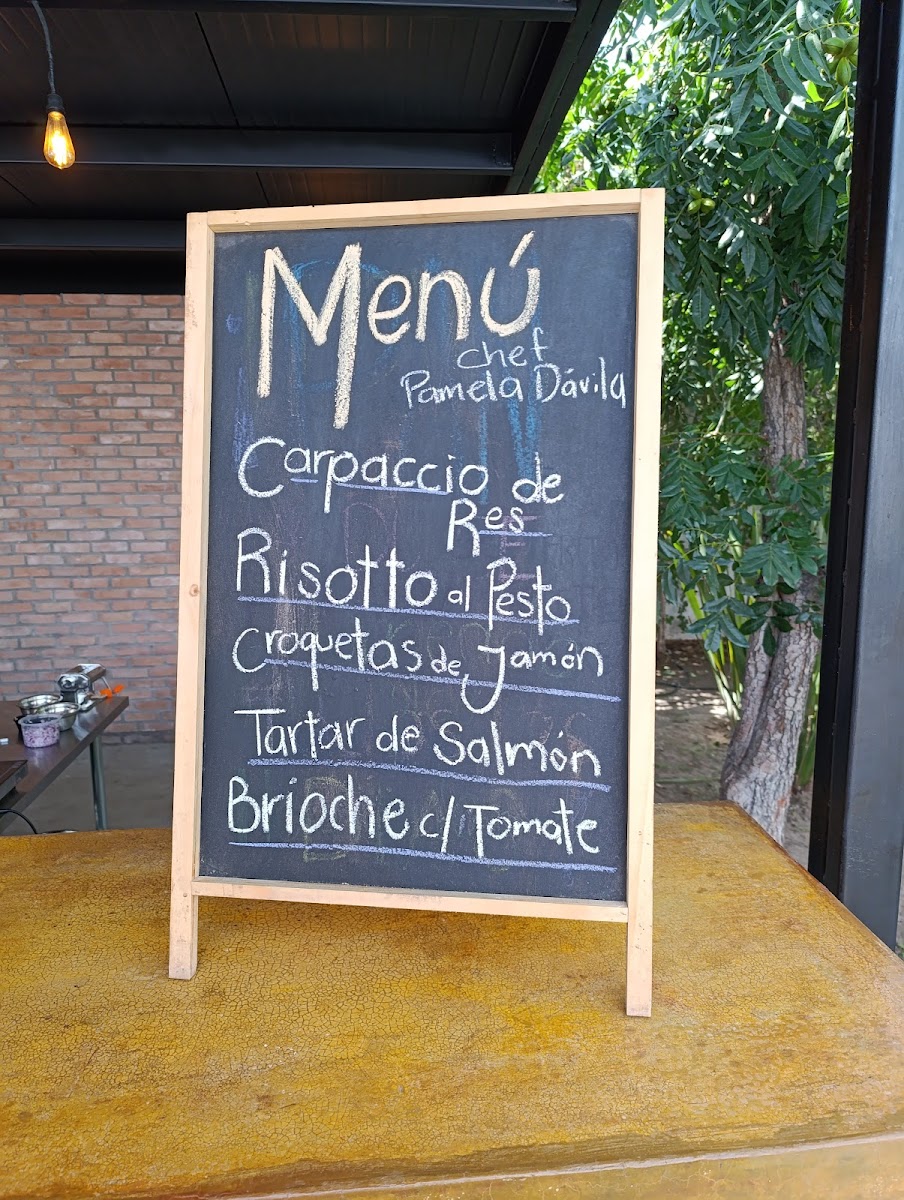 Menú
chef
Pamela Dávila
Carpaccio de
Res
Risotto al Pesto
Croquetas de Jamón
Tartar de Salmón
Brioche c/ Tomate